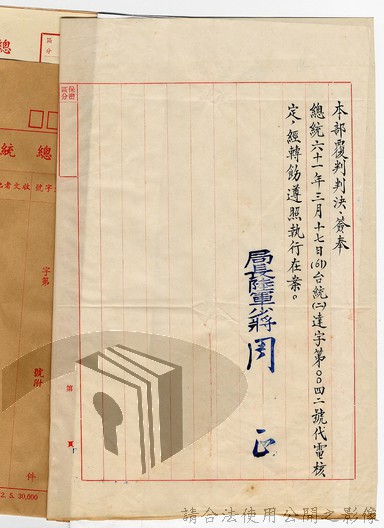 本部覆判判決，簽奉
總統六十一年三月十七日(61)台統(二)達字第○○四二號代電核
定，經轉飭遵照執行在案。
局長陸軍少將周正
保密
區分
第
頁
總
區分
總統
收文者
字號
字第
號附
件
30,000
請合法使用公開之影像